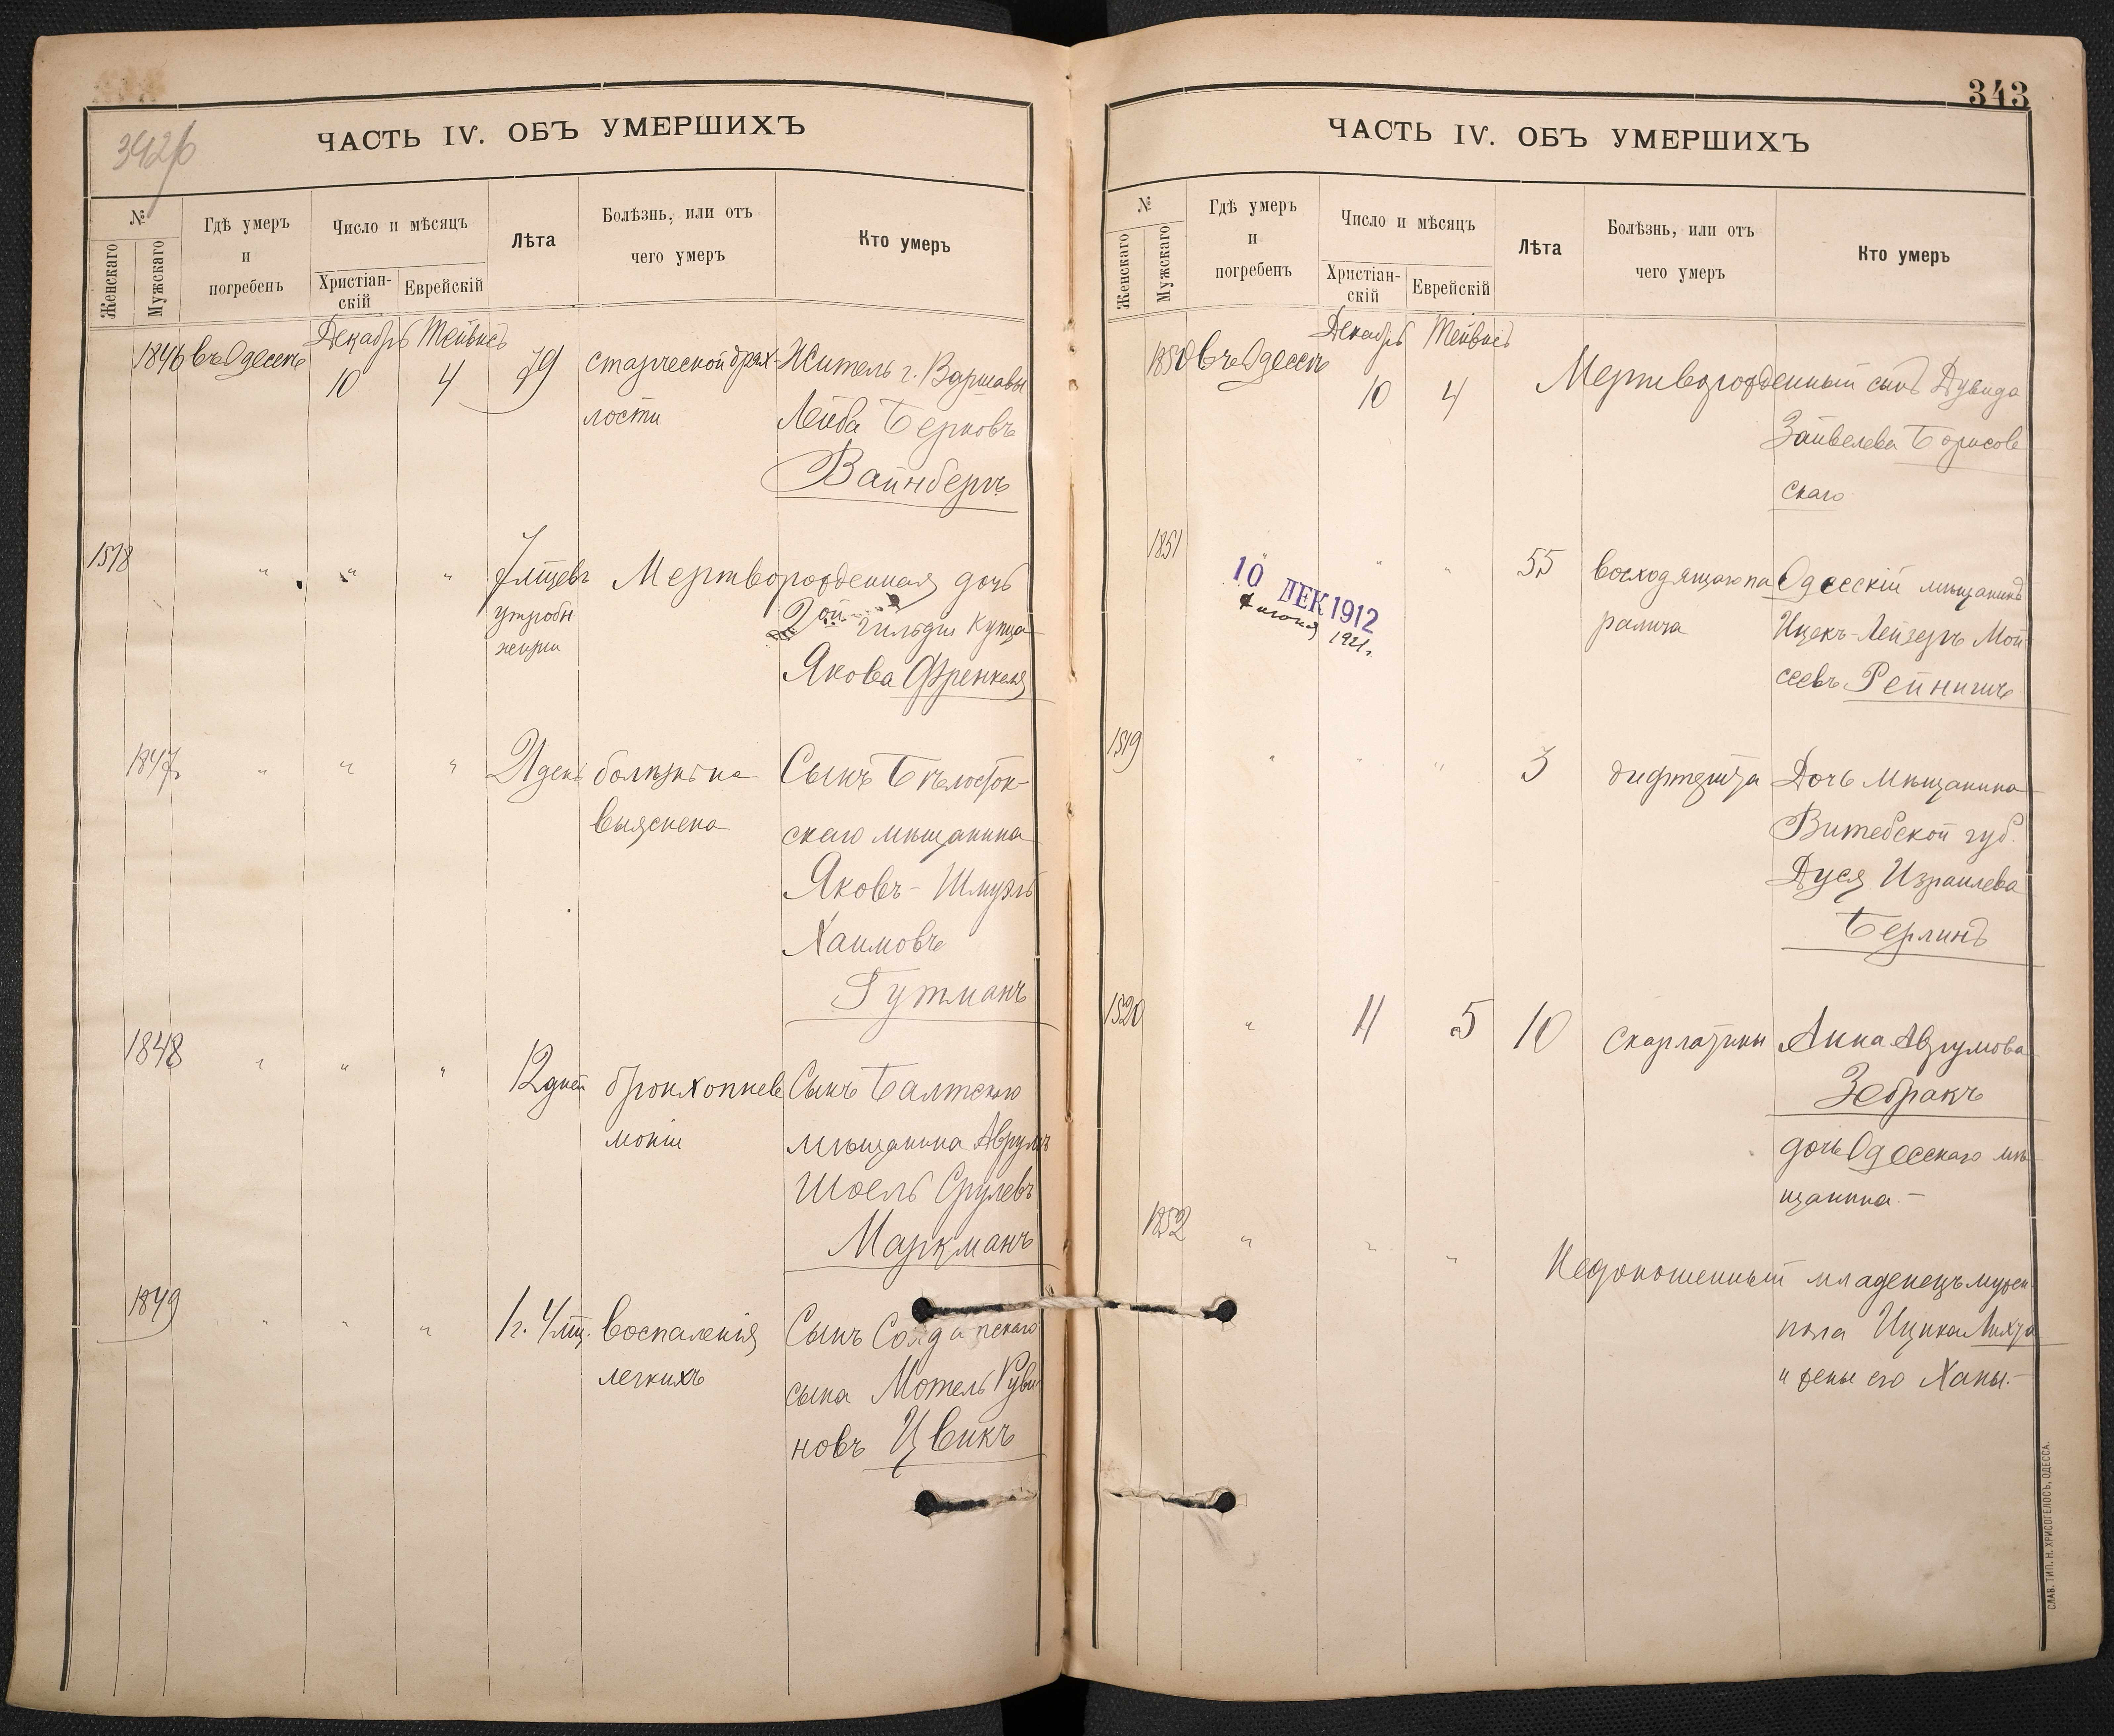 342б
ЧАСТЬ IV. ОБЪ УМЕРШИХЪ
№
Женскаго
Мужскаго
Гдѣ умеръ
и
погребенъ
Число и мѣсяцъ
Христіан-
скій
Еврейскій
Лѣта
Болѣзнь, или отъ
чего умеръ
Кто умеръ
Декабрь Тейвисъ
1846 въ Одессѣ 10 4 79 старческой дрях- Житель г. Варшавы
лости Лейба Берковъ
Вайнбергъ
1518 " " " 7 мѣсцевъ Мертворожденная дочь
утробн 2ой гильдіи купца
жизни Якова Френкеля
1847 " " " 21 день болѣзнь не Сынъ Бѣлосток-
выяснена скаго мѣщанина
Яковъ-Шмуэль
Хаимовъ
Гутманъ
1848 " " " 12 дней бронхопнев Сынъ Балтскаго
моніи мѣщанина Аврумъ
Шоель Срулевъ
Маркманъ
1849 " " " 1 г. 4 мѣс. воспаленія Сынъ Солдатскаго
легкихъ сына Мотель Руви
новъ Цвикъ
343
ЧАСТЬ IV. ОБЪ УМЕРШИХЪ
№
Женскаго
Мужскаго
Гдѣ умеръ
и
погребенъ
Число и мѣсяцъ
Христіан-
скій
Еврейскій
Лѣта
Болѣзнь, или отъ
чего умеръ
Кто умеръ
Декабрь Тейвисъ
1850 въ Одессѣ 10 4 Мертворожденный сынъ Дувида
Зайвелева Борисов
скаго
1851 " " " 55 восходящаго па Одесскій мѣщанинъ
ралича Ицекъ-Лейзеръ Мой
сеевъ Рейнгичъ
10 ДЕК 1912
1921 г.
1519 " " " 3 дифтерита Дочь мѣщанина
Витебской губ.
Дуся Израилева
Берлинъ
1520 " 11 5 10 скарлатины Анна Аврумова
Зебракъ
дочь Одесскаго мѣ
щанина.-
1852 " " " Недоношенный младенецъ мужск.
пола Ицика
и жены его Ханы.-
СЛАВ. ТИП. Н. ХРИСОГЕЛОСЪ, ОДЕССА.